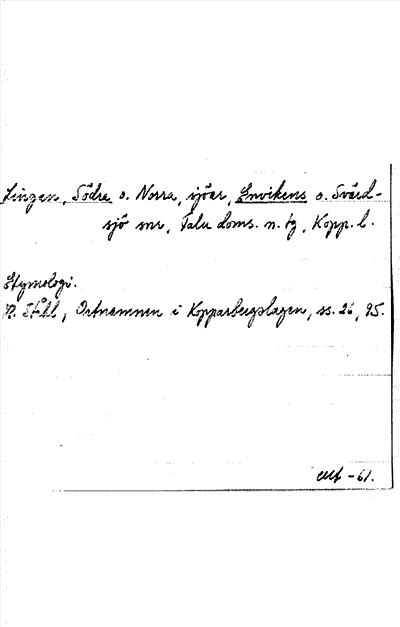 Lingan, Södra o. Norra, sjöar, Envikens o. Svärd-
sjö snr, Falu doms. n. tg, Kopp. l.
Etymologi.
H. Ståhl, Ortnamnen i Kopparbergslagen, ss. 26, 95.
-61.